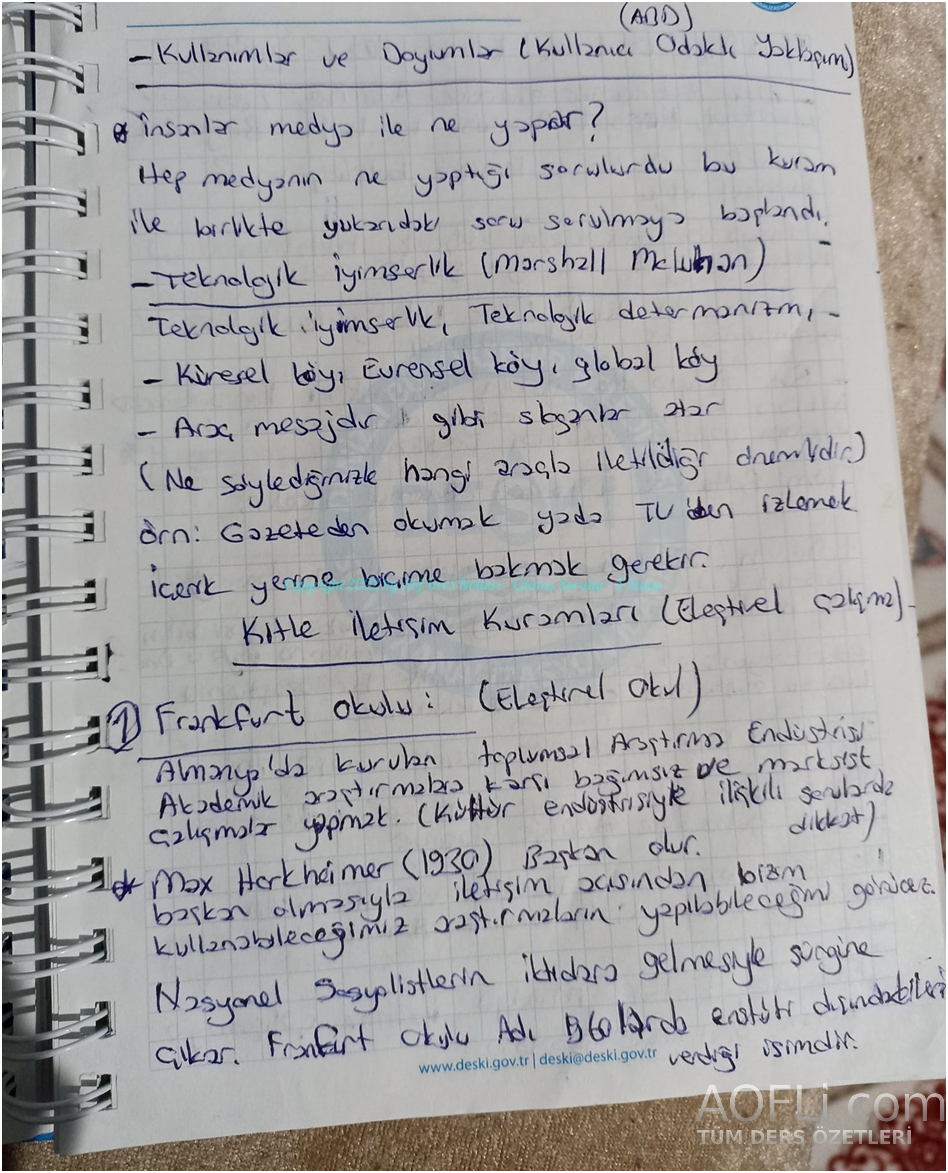 (ABD)
- Kullanımlar ve Doyumlar (Kullanıcı Odaklı Yaklaşım)
* İnsanlar medya ile ne yapar?
Hep medyanın ne yaptığı sorulurdu bu kuram
ile birlikte yukarıdaki soru sorulmaya başlandı.
- Teknolojik İyimserlik (Marshall McLuhan)
Teknolojik iyimserlik, Teknolojik determanizm, -
- Küresel köy, Evrensel köy, global köy
- Araç mesajdır gibi sloganlar atar
(Ne söylediğinizle hangi araçla iletildiği önemlidir.)
Örn: Gazeteden okumak yada TV'den izlemek
İçerik yerine biçime bakmak gerekir.
Kitle İletişim Kuramları (Eleştirel Çalışma) -
1 Frankfurt Okulu: (Eleştirel Okul)
Almanya'da kurulan toplumsal Araştırma Endüstrisi
Akademik araştırmalara karşı bağımsız ve marksist
çalışmalar yapmak. (Kültür endüstrisiyle ilişkili sorularda
dikkat)
* Max Horkheimer (1930) Başkan olur.
başkan olmasıyla iletişim açısından bizim
kullanabileceğimiz araştırmaların yapılabileceğini görücez.
Nasyonel Sosyalistlerin iktidara gelmesiyle sürgüne
çıkar. Frankfurt Okulu Adı 1960'larda enstütü dışındakilerin
verdiği isimdir.
www.deski.gov.tr | deski@deski.gov.tr
AOFLi com
TÜM DERS ÖZETLERİ